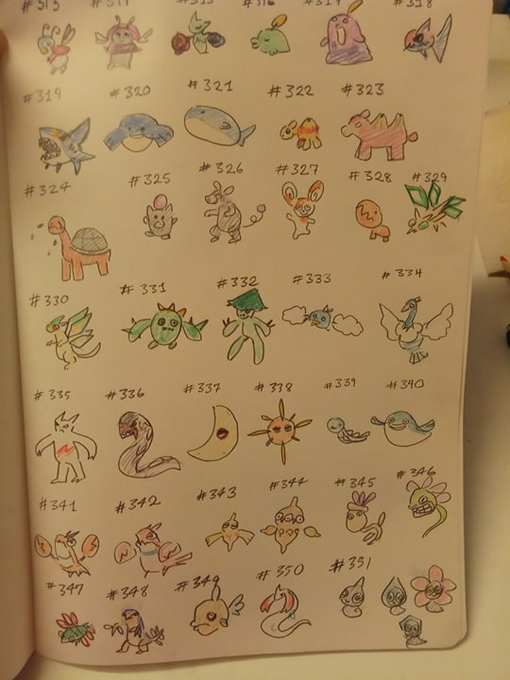 #313 #314 #315 #316 #317 #318
#319 #320 #321 #322 #323
#324 #325 #326 #327 #328 #329
#330 #331 #332 #333 #334
#335 #336 #337 #338 #339 #340
#341 #342 #343 #344 #345 #346
#347 #348 #349 #350 #351